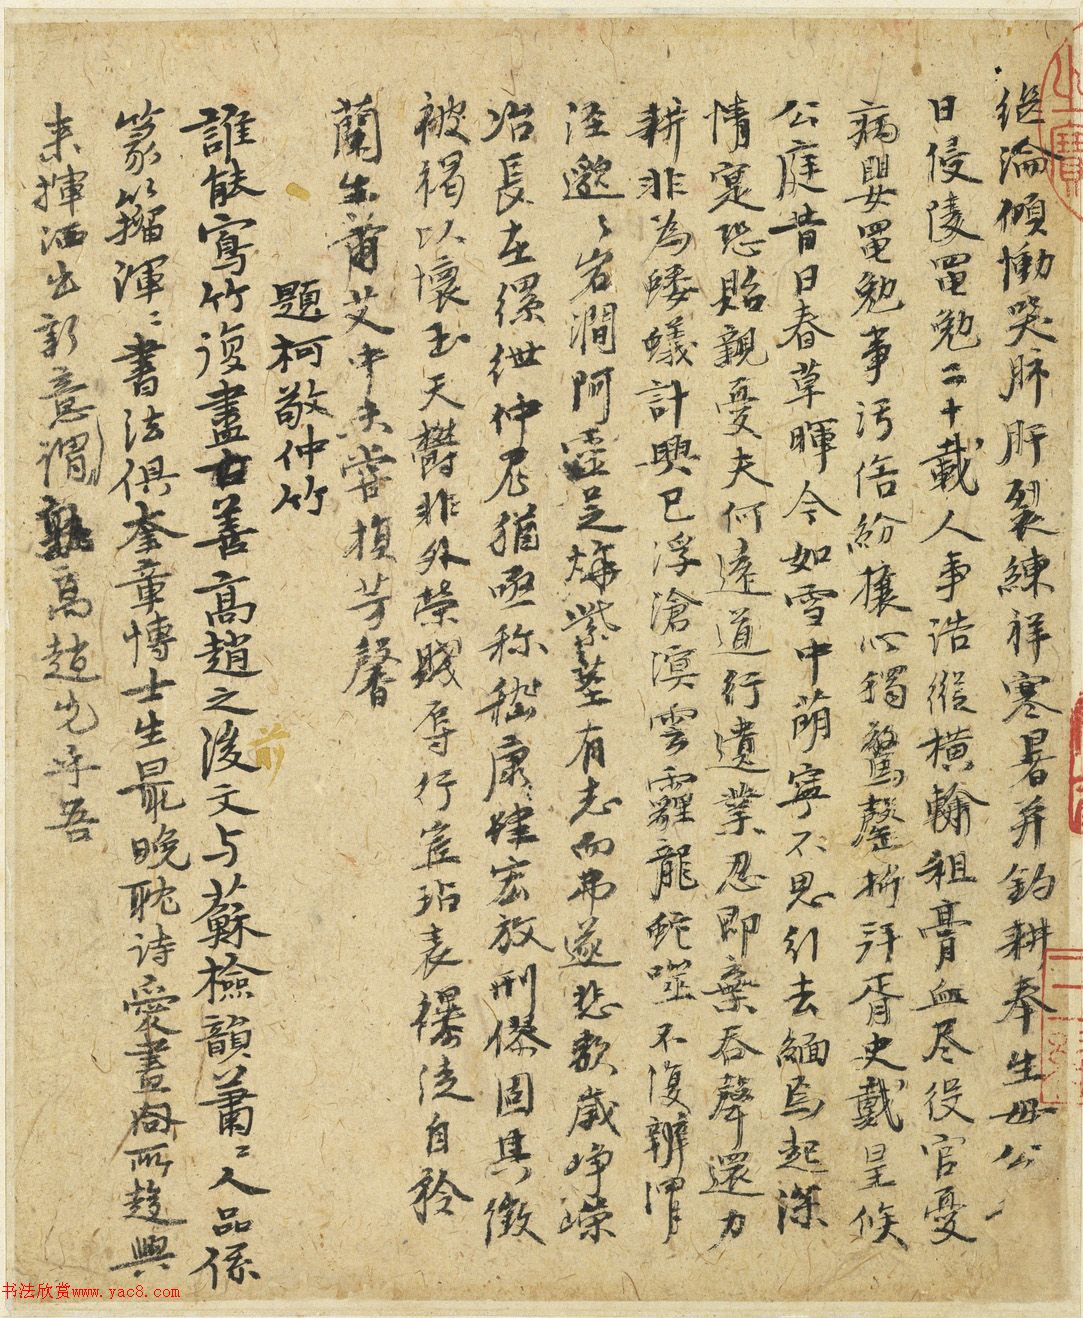 继淪傾慟哭肺肝裂練祥寒暑并釣耕奉生母公
日侵陵黽勉二十載人事浩縱橫輸租膏血尽役官憂
病嬰黽勉事污俗紛攘心獨驚罄折拜胥史戴星候
公庭昔日春草暉今如雪中萌寧不思引去緬焉起深
情寔恐貽親憂夫何遠道行遺業忍即棄吞聲還力
耕非為螻蟻計興已浮滄溟雲霾龍蛇噬不復辨渭
涇邈〻岩澗阿靈芝燁紫莖有志而弗遂悲歌歲崢嶸
冶長在縲绁仲尼猶亟称嵇康肆宏放刑僇固其徵
被褐以懷玉天爵非外榮賤辱行豈玷表襮徒自矜
蘭生蕭艾中未嘗損芳馨
題柯敬仲竹
誰能寫竹復盡善高趙之後文与蘇檢韻蕭〻人品係
前
篆籀渾〻書法俱奎章博士生最晚耽诗愛畫同所趋興
来揮洒出新意謂孰高趙先乎吾
书法欣赏www.yac8.com